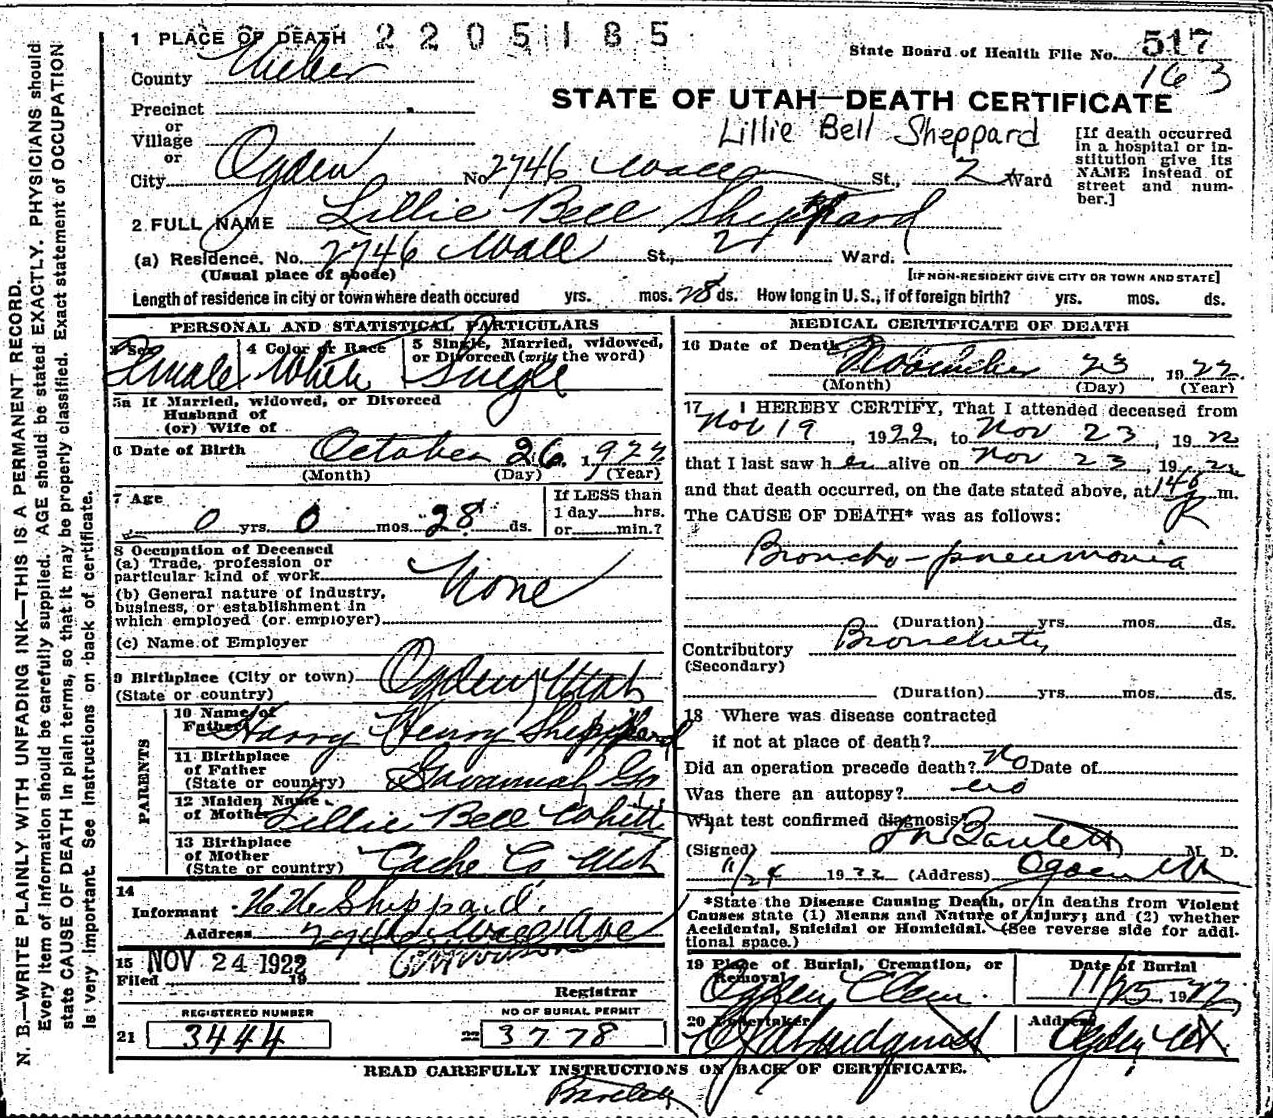 1 PLACE OF DEATH 2205185
State Board of Health File No. 517
163
County Weber
STATE OF UTAH—DEATH CERTIFICATE
Precinct
or
Village
or
Lillie Bell Sheppard
[If death occurred in a hospital or institution give its NAME instead of street and number.]
City Ogden No. 2746 Wall St., 2 Ward
2 FULL NAME Lillie Bell Sheppard
(a) Residence. No. 2746 Wall St., 2 Ward.
(Usual place of abode)
[IF NON-RESIDENT GIVE CITY OR TOWN AND STATE]
Length of residence in city or town where death occured yrs. mos. 28 ds. How long in U. S., if of foreign birth? yrs. mos. ds.
PERSONAL AND STATISTICAL PARTICULARS
3 Sex
Female
4 Color or Race
White
5 Single, Married, widowed, or Divorced (write the word)
Single
5a If Married, widowed, or Divorced
Husband of
(or) Wife of
6 Date of Birth October 26. 1922
(Month) (Day) (Year)
7 Age
0 yrs. 0 mos. 28 ds.
If LESS than
1 day hrs.
or min.?
8 Occupation of Deceased
(a) Trade, profession or
particular kind of work None
(b) General nature of industry,
business, or establishment in
which employed (or employer)
(c) Name of Employer
9 Birthplace (City or town) Ogden Utah
(State or country)
PARENTS
10 Name of
Father Harry Henry Sheppard
11 Birthplace
of Father
(State or country) Savannah Ga
12 Maiden Name
of Mother Lillie Bell
13 Birthplace
of Mother
(State or country) Cache Co Utah
14
Informant H. H. Sheppard.
Address 2746 Wall Ave
15 NOV 24 1922
Filed 19
Registrar
REGISTERED NUMBER
21 3444
NO OF BURIAL PERMIT
22 3778
MEDICAL CERTIFICATE OF DEATH
16 Date of Death November 23 1922
(Month) (Day) (Year)
17 I HEREBY CERTIFY, That I attended deceased from
Nov 19, 1922, to Nov 23, 1922
that I last saw her alive on Nov 23, 1922
and that death occurred, on the date stated above, at m.
The CAUSE OF DEATH* was as follows:
Broncho-pneumonia
(Duration) yrs. mos. ds.
Contributory Bronchitis
(Secondary)
(Duration) yrs. mos. ds.
18 Where was disease contracted
if not at place of death?
Did an operation precede death? No Date of
Was there an autopsy? no
What test confirmed diagnosis?
(Signed) Bartlett M. D.
11/24 1922 (Address) Ogden Ut
*State the Disease Causing Death, or in deaths from Violent
Causes state (1) Means and Nature of Injury; and (2) whether
Accidental, Suicidal or Homicidal. (See reverse side for addi-
tional space.)
19 Place of Burial, Cremation, or
Removal
Ogden Cem.
Date of Burial
11/25 1922
20 Undertaker
Address
Ogden Ut
READ CAREFULLY INSTRUCTIONS ON BACK OF CERTIFICATE.
Bartlett
N. B.—WRITE PLAINLY WITH UNFADING INK—THIS IS A PERMANENT RECORD.
Every item of information should be carefully supplied. AGE should be stated EXACTLY. PHYSICIANS should
state CAUSE OF DEATH in plain terms, so that it may be properly classified. Exact statement of OCCUPATION
is very important. See Instructions on back of certificate.